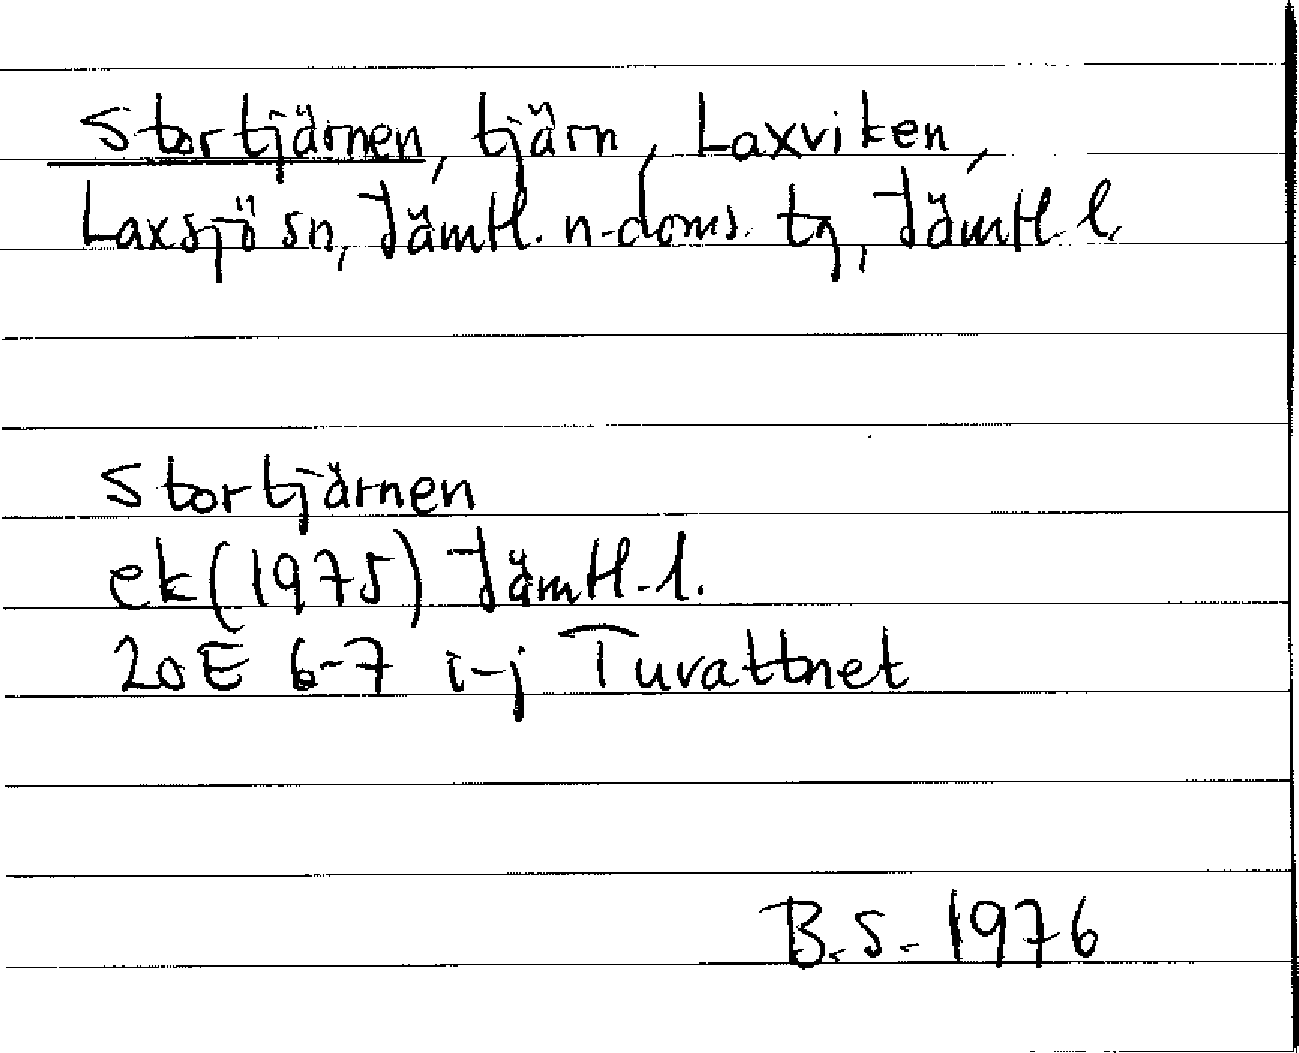 Stortjärnen, tjärn, Laxviken,
Laxsjö sn, Jämtl. n-doms. tg, Jämtl. l.
Stortjärnen
ek (1975) Jämtl. l.
20E 6-7 i-j Tuvattnet
B.S. 1976